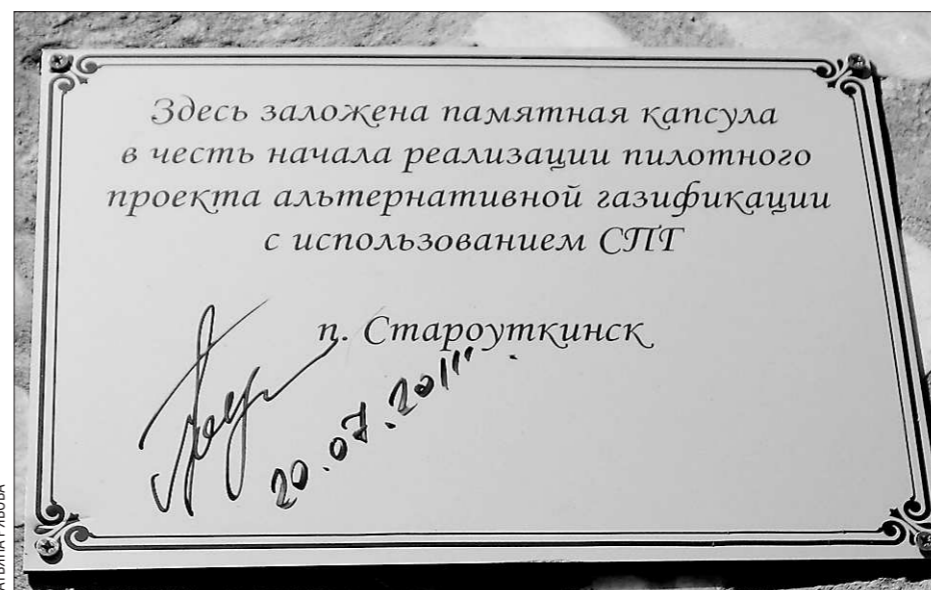 Здесь заложена памятная капсула
в честь начала реализации пилотного
проекта альтернативной газификации
с использованием СПГ
п. Староуткинск
20.07.2011